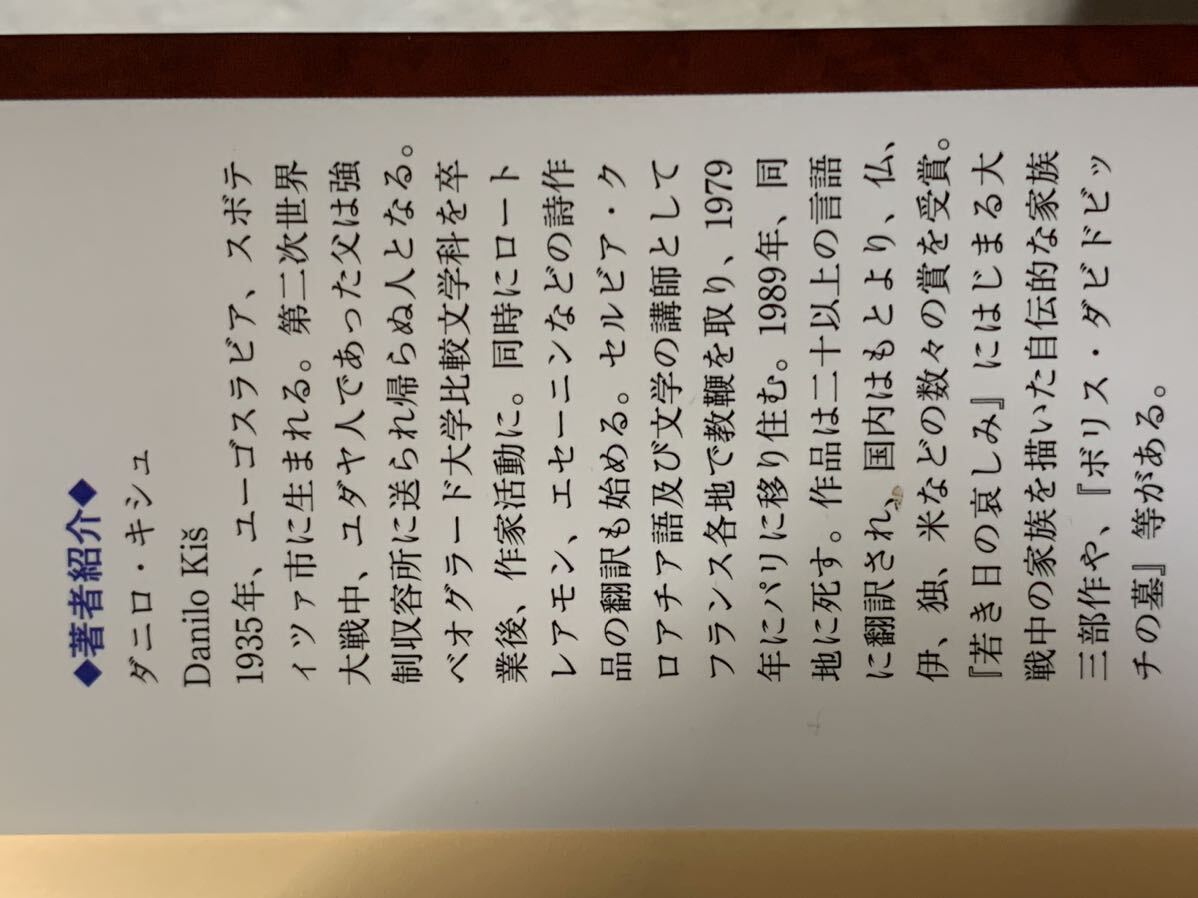 ◆著者紹介◆
ダニロ・キシュ
Danilo Kiš
1935年、ユーゴスラビア、スボテ
ィツァ市に生まれる。第二次世界
大戦中、ユダヤ人であった父は強
制収容所に送られ帰らぬ人となる。
ベオグラード大学比較文学科を卒
業後、作家活動に。同時にロート
レアモン、エセーニンなどの詩作
品の翻訳も始める。セルビア・ク
ロアチア語及び文学の講師として
フランス各地で教鞭を取り、1979
年にパリに移り住む。1989年、同
地に死す。作品は二十以上の言語
に翻訳され、国内はもとより、仏、
伊、独、米などの数々の賞を受賞。
『若き日の哀しみ』にはじまる大
戦中の家族を描いた自伝的な家族
三部作や、『ボリス・ダビドビッ
チの墓』等がある。